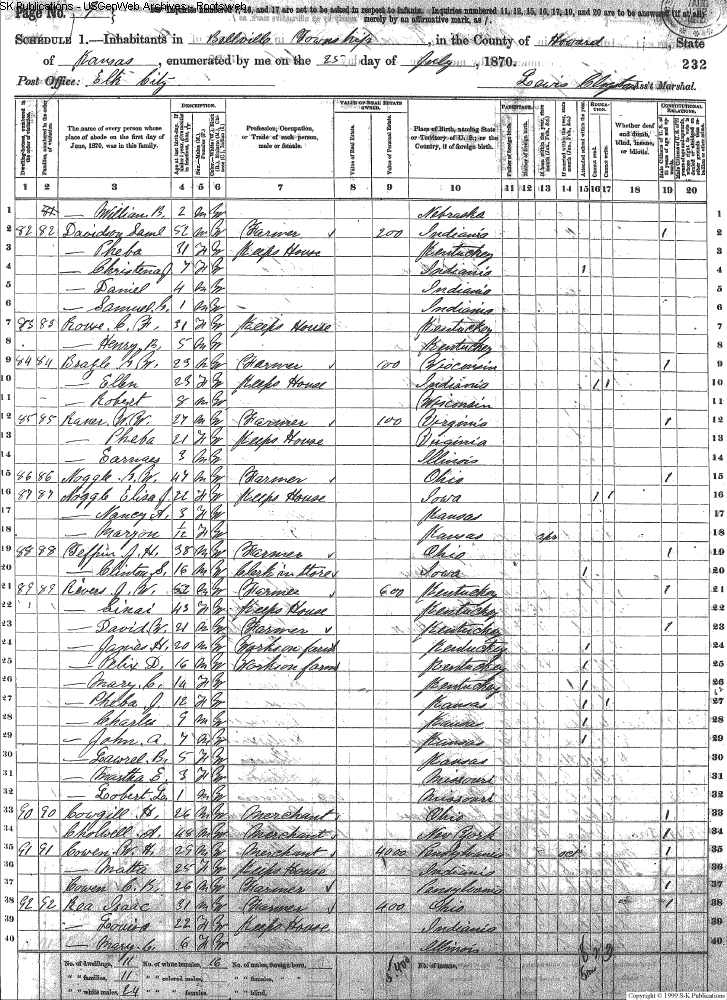 SK Publications - USGenWeb Archives - Rootsweb
Page No.
Inquiries numbered 7, 16, and 17 are not to be asked in respect to infants. Inquiries numbered 11, 12, 15, 16, 17, 19, and 20 are to be answered (if at all) merely by an affirmative mark, as /.
SCHEDULE 1.—Inhabitants in Bellville Township, in the County of Howard, State
of Kansas, enumerated by me on the 25 day of July, 1870. 232
Post Office: Elk City Lewis Ass't Marshal.
DESCRIPTION. VALUE OF REAL ESTATE OWNED. PARENTAGE. EDUCATION. CONSTITUTIONAL RELATIONS.
The name of every person whose place of abode on the first day of June, 1870, was in this family.
Profession, Occupation, or Trade of each person, male or female.
Value of Real Estate.
Value of Personal Estate.
Place of Birth, naming State or Territory of U. S.; or the Country, if of foreign birth.
Father of foreign birth.
Mother of foreign birth.
Attended school within the year.
Cannot read.
Cannot write.
Whether deaf and dumb, blind, insane, or idiotic.
1 2 3 4 5 6 7 8 9 10 11 12 13 14 15 16 17 18 19 20
1 — William B. 2 M W Nebraska 1
2 82 82 Davidson Saml 52 M W Farmer 200 Indiania 1 2
3 — Pheba 31 F W Keeps House Kentucky 3
4 — Christena J. 7 F W Indiania / 4
5 — Daniel 4 M W Indiania 5
6 — Samuel C. 1 M W Indiania 6
7 83 83 Rowe C. F. 31 F W Keeps House Kentucky 7
8 — Henry B. 5 M W Kentucky 8
9 84 84 Beagle G. W. 23 M W Farmer 100 Wisconsin 1 9
10 — Ellen 23 F W Keeps House Indiania 1 1 10
11 — Robert 8 M W Wisconsin 11
12 85 85 Raver W. W. 27 M W Farmer 100 Virginia 1 12
13 — Pheba 21 F W Keeps House Virginia 13
14 — 3 M W Illinois 14
15 86 86 Noggle G. W. 47 M W Farmer Ohio 1 15
16 87 87 Noggle Eliza J. 22 F W Keeps House Iowa 1 1 16
17 — Nancy A. 3 F W Kansas 17
18 — Maryon 1/12 F W Kansas apr 18
19 88 88 J. H. 38 M W Farmer Ohio 1 19
20 — Clinton S. 16 M W Clerk in Store Iowa / 20
21 89 89 Revers J. W. 52 M W Farmer 600 Kentucky 1 21
22 — Einai 43 F W Keeps House Kentucky 22
23 — David W. 21 M W Farmer Kentucky 1 23
24 — James H. 20 M W Works on farm Kentucky / 24
25 — Felix D. 16 M W Works on farm Kentucky / 25
26 — Mary C. 14 F W Kentucky / 26
27 — Pheba J. 12 F W Kansas / 1 27
28 — Charles 9 M W Kansas / 28
29 — John A. 7 M W Kansas / 29
30 — Laurel B. 5 F W Kansas 30
31 — Martha E. 3 F W Missouri 31
32 — Lobert Le. 1 M W Missouri 32
33 90 90 Cowgill H. 26 M W Merchant Ohio 1 33
34 Cholwell A. 48 M W Merchant New York 1 34
35 91 91 Cowen W. H. 29 M W Merchant 4000 Pensylvania oct 1 35
36 — Matta 25 F W Keeps House Indiania 36
37 Cowen C. K. 26 M W Farmer Pensylvania 1 37
38 92 92 Rea Isaac 31 M W Farmer 400 Ohio 1 38
39 — Louisa 22 F W Keeps House Indiania 39
40 — Mary C. 6 F W Illinois 40
No. of dwellings, 11 No. of white females, 16 No. of males, foreign born, 5,400 No. of insane,
" " families, 11 " " colored males, " " females,
" " white males, 24 " " females, " " blind,
Copyright © 1999 S-K Publications